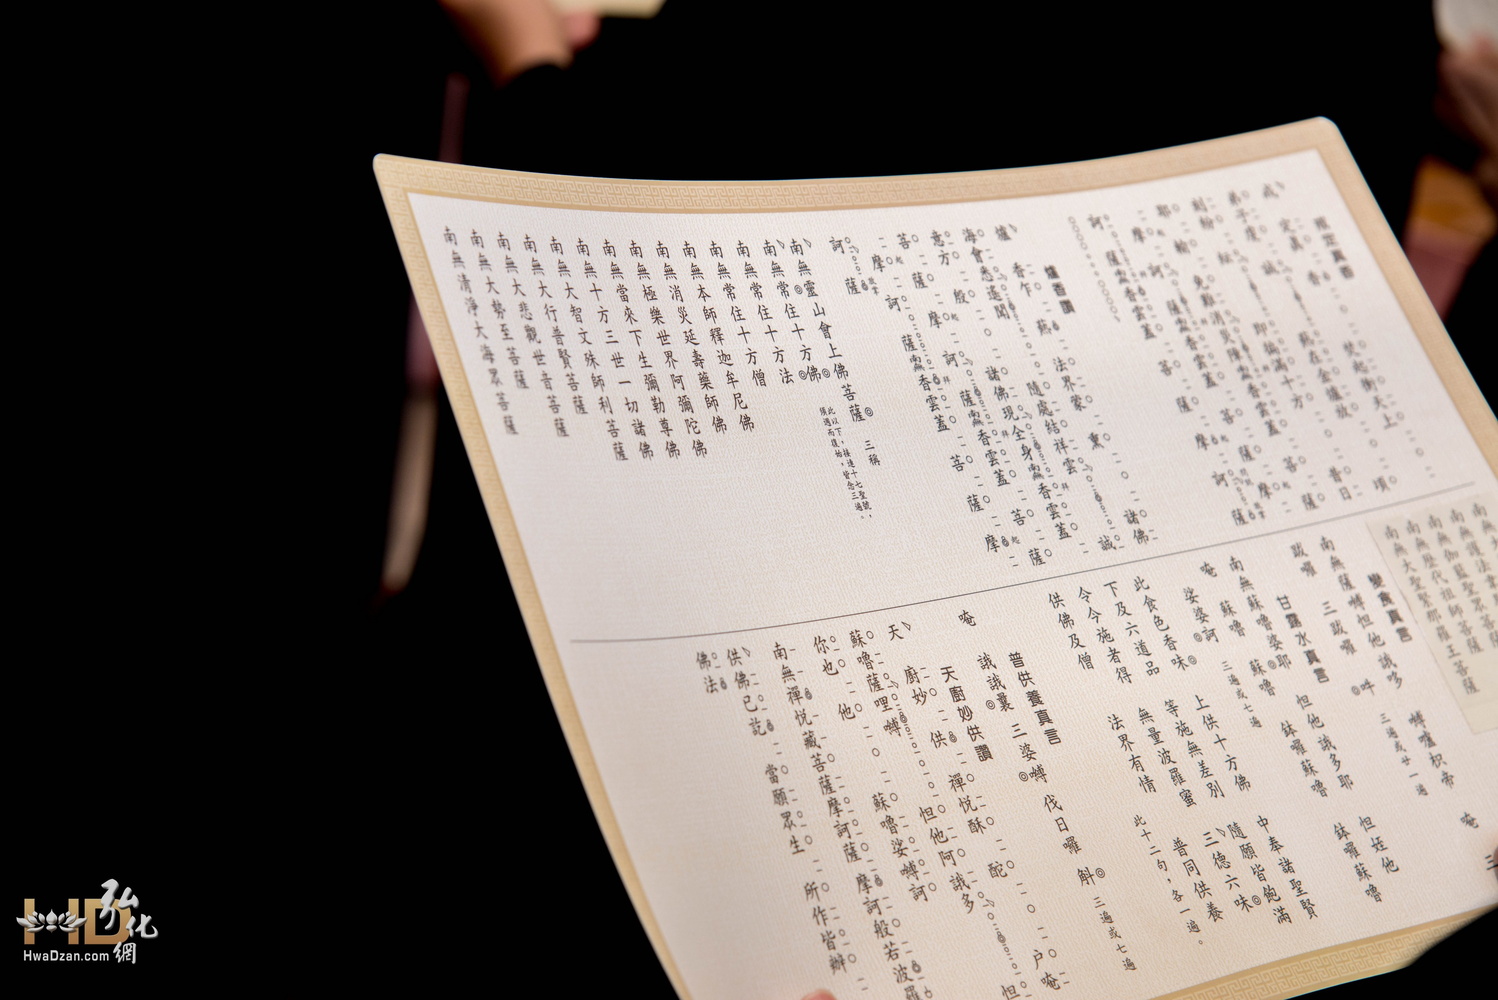 戒定真香
戒定真香焚起衝天上
弟子虔誠爇在金爐放頃
刻紛紜即遍滿十方昔日
耶輸免難消災障南無香雲蓋菩薩
摩訶薩南無香雲蓋菩薩摩
訶薩南無香雲蓋菩薩摩訶薩
爐香讚
爐香乍爇法界蒙熏諸佛
海會悉遙聞隨處結祥雲誠
意方殷諸佛現全身南無香雲蓋
菩薩摩訶薩南無香雲蓋菩薩
摩訶薩南無香雲蓋菩薩摩
訶薩
南無靈山會上佛菩薩 三稱
此以下，接連十七聖號，
週而復始，皆念三遍。
南無常住十方佛
南無常住十方法
南無常住十方僧
南無本師釋迦牟尼佛
南無消災延壽藥師佛
南無極樂世界阿彌陀佛
南無當來下生彌勒尊佛
南無十方三世一切諸佛
南無大智文殊師利菩薩
南無大行普賢菩薩
南無大悲觀世音菩薩
南無大勢至菩薩
南無清淨大海眾菩薩
南無護法韋
南無伽藍聖眾菩薩
南無歷代祖師菩薩
南無大聖緊那羅王菩薩
變食真言
南無薩嚩怛他誐哆 嚩嚧枳帝 唵 三
跋囉 三跋囉 吽 三遍或廿一遍
甘露水真言
南無蘇嚕婆耶 怛他誐多耶 怛姪他
唵 蘇嚕 蘇嚕 鉢囉蘇嚕 鉢囉蘇嚕
娑婆訶 三遍或七遍
此食色香味 上供十方佛 中奉諸聖賢
下及六道品 等施無差別 隨願皆飽滿
令今施者得 無量波羅蜜 三德六味
供佛及僧 法界有情 普同供養
此十二句，各一遍。
普供養真言
唵 誐誐曩 三婆嚩 伐日囉 斛 三遍或七遍
天廚妙供讚
天廚妙供禪悅酥酡户唵
蘇嚕薩哩嚩怛他阿誐多怛
你也他蘇嚕娑嚩訶
南無禪悅藏菩薩摩訶薩摩訶般若波羅
供佛已訖當願眾生所作皆辦
佛法
弘化網
HD
HwaDzan.com